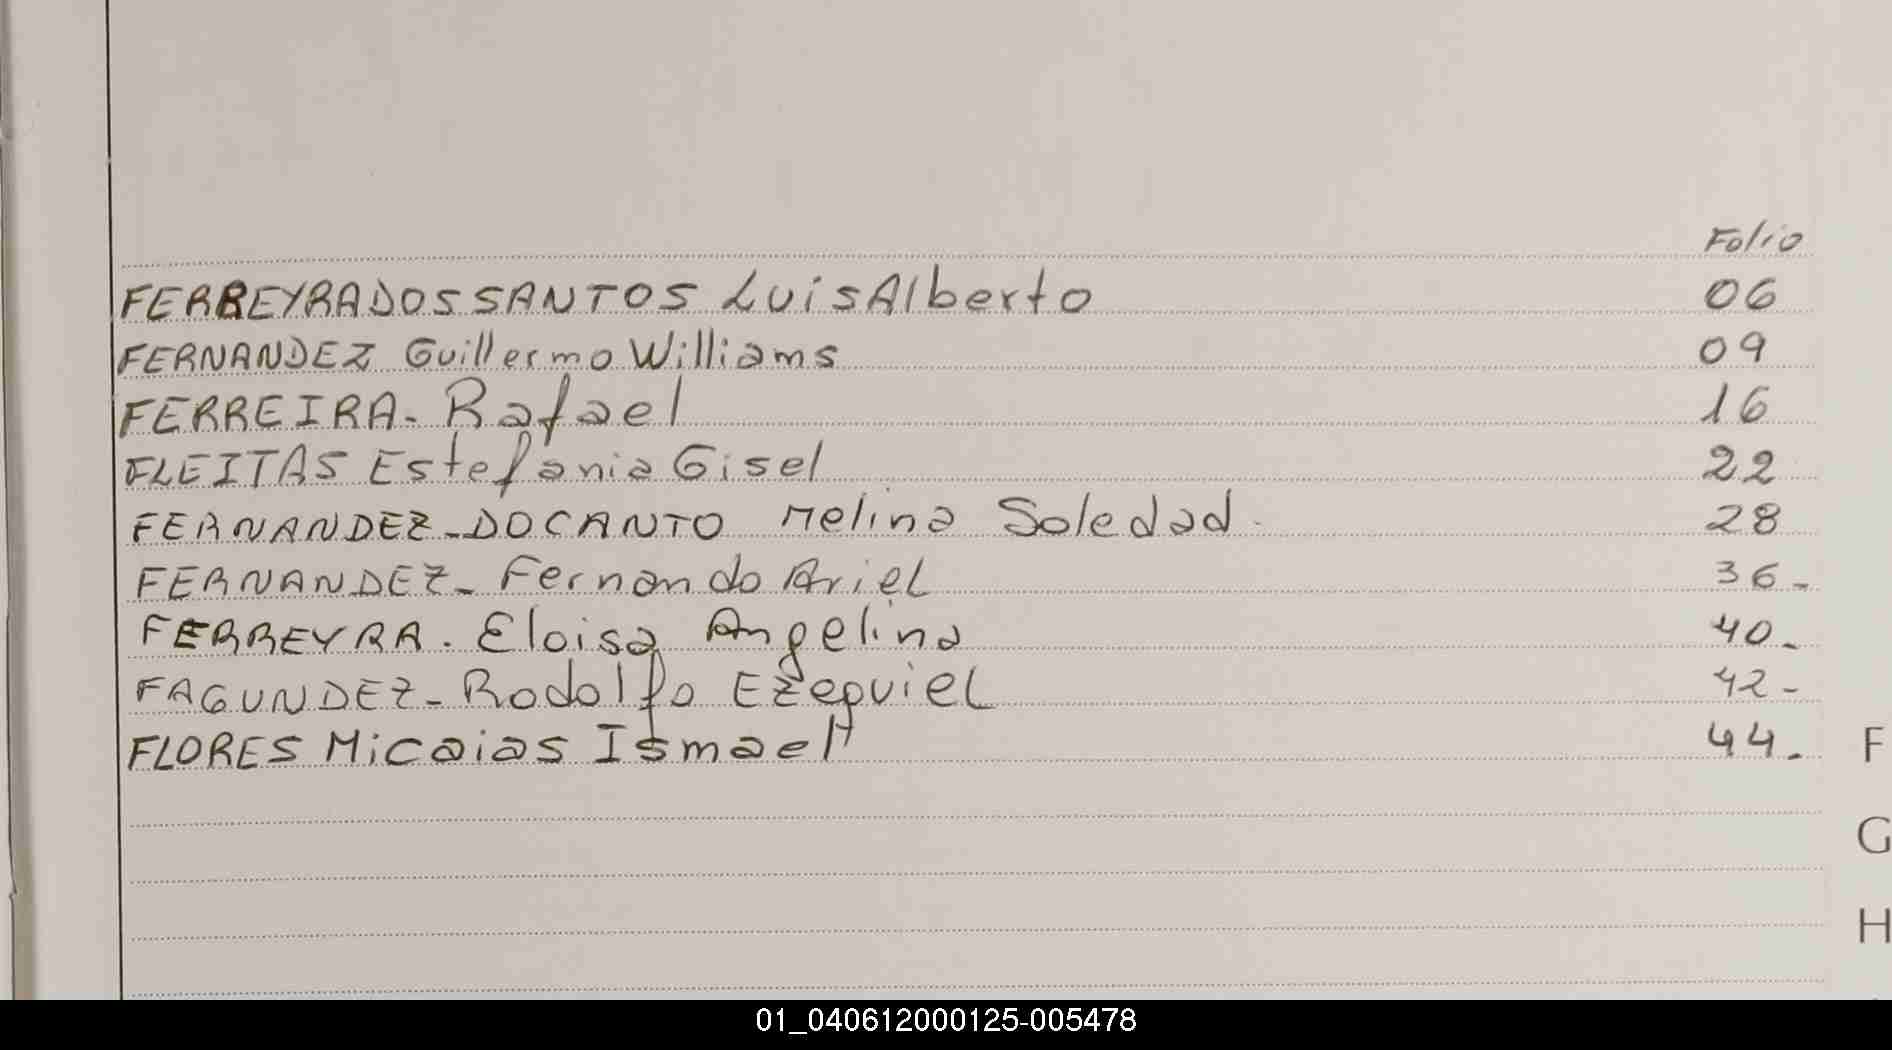 Folio
FERREYRA DOS SANTOS Luis Alberto 06
FERNANDEZ Guillermo Williams 09
FERREIRA- Rafael 16
FLEITAS Estefania Gisel 22
FERNANDEZ-DOCANTO Melina Soledad- 28
FERNANDEZ- Fernando Ariel 36-
FERREYRA- Eloisa Angelina 40-
FAGUNDEZ- Rodolfo Ezequiel 42-
FLORES Micaias Ismael 44-
F
G
H
01_040612000125-005478